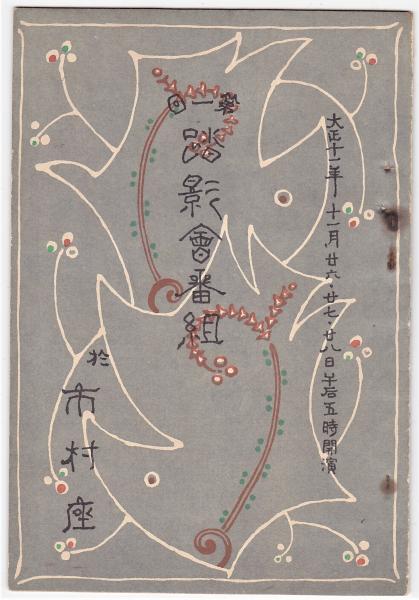 大正十一年十一月廿六・廿七・廿八日午后五時開演
第一回
踏影會番組
於
市村座